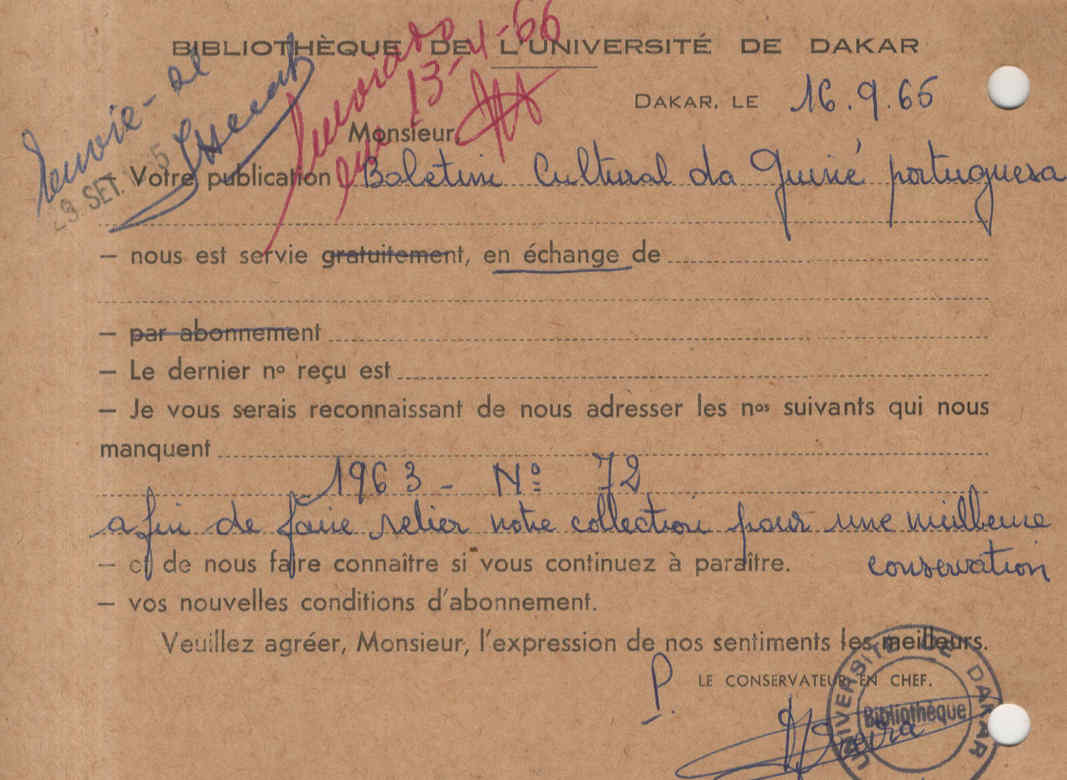 BIBLIOTHÈQUE DE L'UNIVERSITÉ DE DAKAR
13-4-66
DAKAR, LE 16.9.65
Envie-se
Monsieur
23 SET. 65
Votre publication Boletim Cultural da Guiné portuguesa
— nous est servie gratuitement, en échange de
— par abonnement
— Le dernier nº reçu est
— Je vous serais reconnaissant de nous adresser les nos suivants qui nous
manquent
1963 - Nº 72
afin de faire relier notre collection pour une meilleure
conservation
— et de nous faire connaître si vous continuez à paraître.
— vos nouvelles conditions d'abonnement.
Veuillez agréer, Monsieur, l'expression de nos sentiments les meilleurs.
P. LE CONSERVATEUR EN CHEF.
UNIVERSITÉ DE DAKAR
Bibliothèque